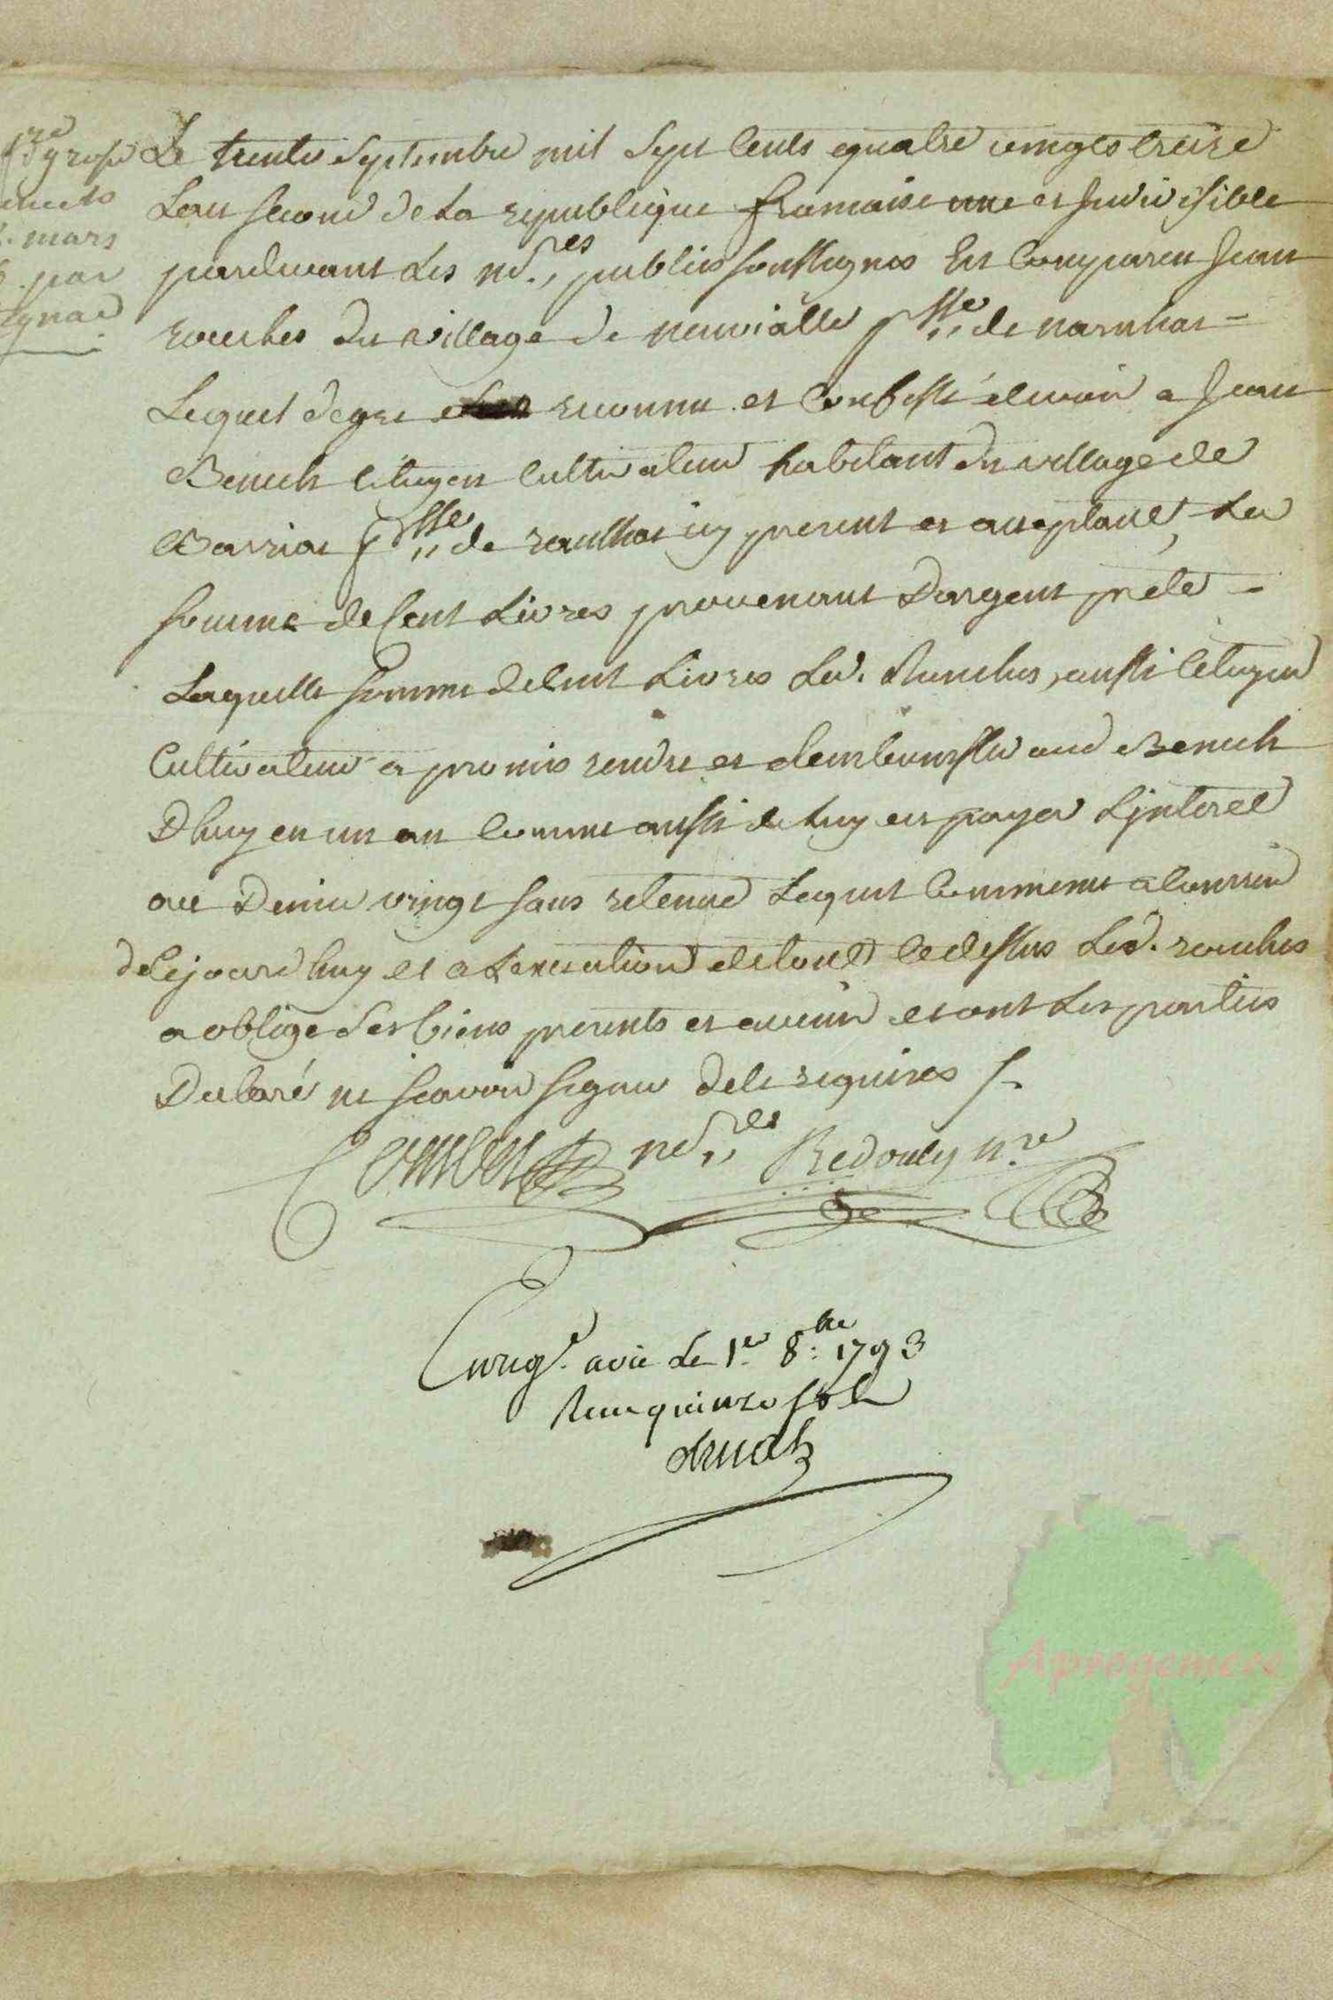 Le trente Septembre mil Sept Cents quatre vingts treize
Lan second de La republique francaise une et Indivisible
pardevant Les nres,, publics soussignes Est Comparu Jean
rouches du village de neuvialle psse,, de narnhac -
Lequel de gre a reconnu et Confessé devoir a Jean
Benech Citoyen Cultivateur habitant du village de
Barriac psse,, de raulhac icy present et acceptant, La
somme de Cent Livres provenant Dargent prete -
Laquelle somme de Cent Livres Led. Rouches, aussi Citoyen
Cultivateur a promis rendre et aud Benech
Dhuy en un an Comme aussi de luy en payer Linteret
au Denier vingt sans retenue Lequel Commence a Courir
de Cejourd huy et a Lexecution de tout Cedessus Led. rouches
a oblige ses biens presents et avenir et ont Les parties
Declaré ne scavoir signer de Ce requises /.
nres,, Redouly n.re
Enreg.e a vic Le 1er 8.bre 1793
Recu quinze sols
mars
par
Aprogemere